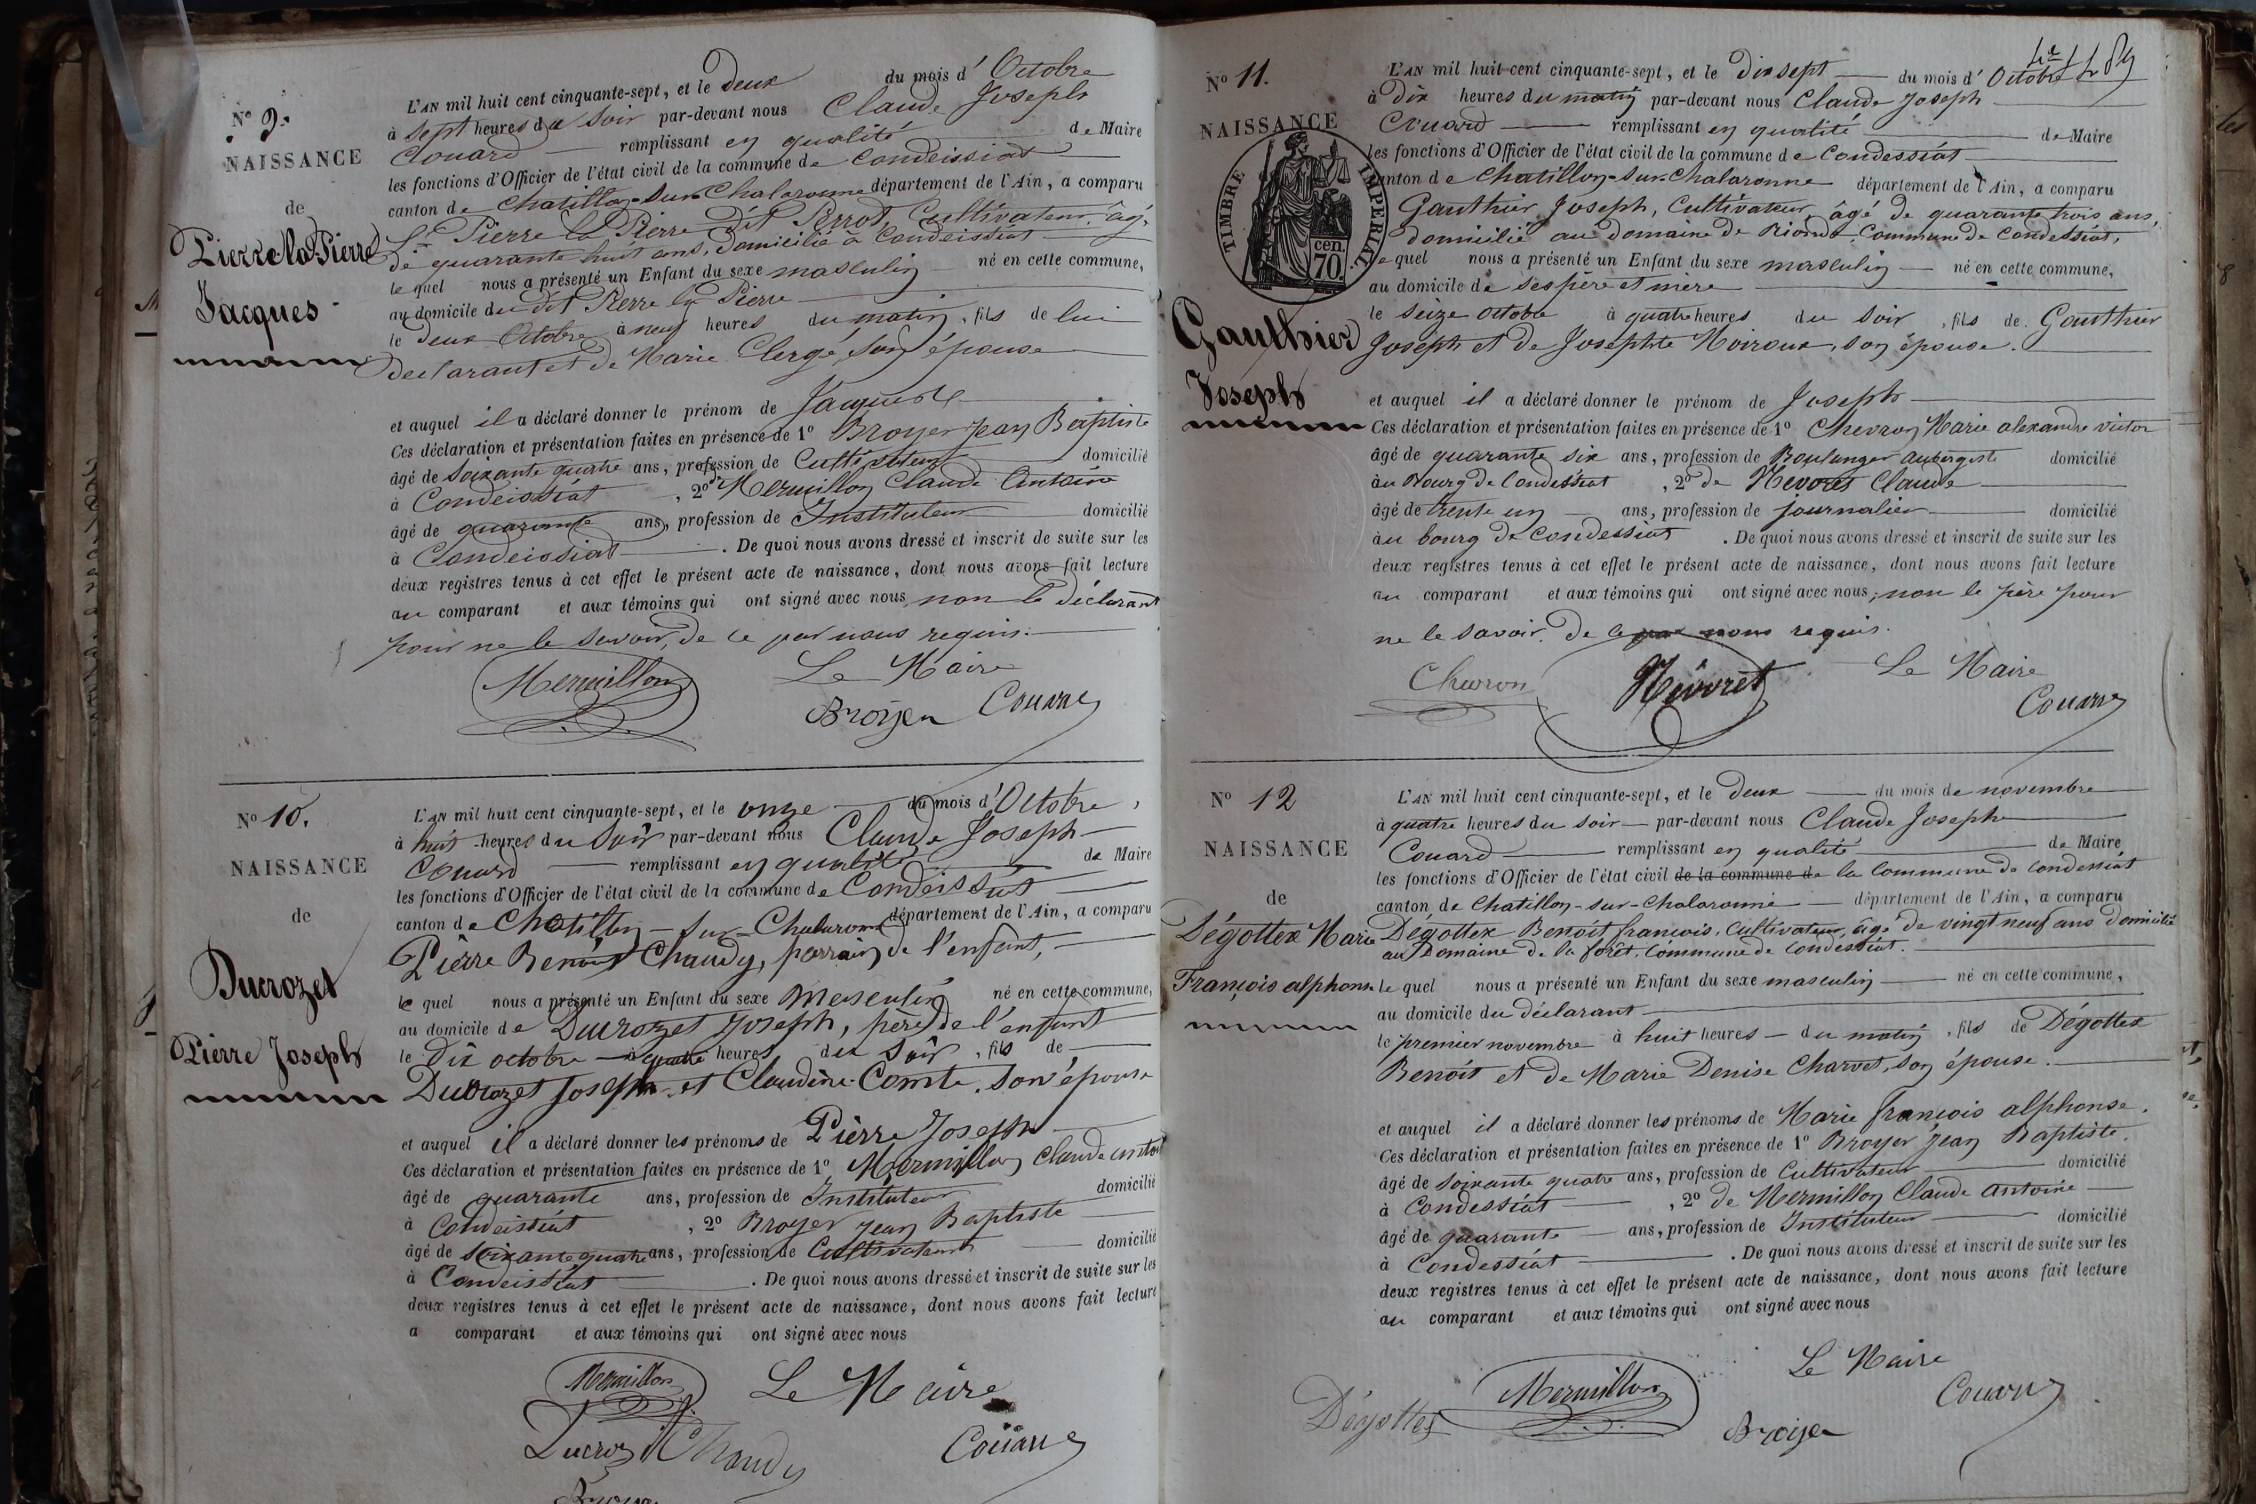 N° 9.
NAISSANCE
de
Pierre-la-Pierre
Jacques
L'AN mil huit cent cinquante-sept, et le deux du mois d' Octobre
à sept heures du soir par-devant nous Claude Joseph
Couard remplissant en qualité de Maire
les fonctions d'Officier de l'état civil de la commune de Condeissiat
canton de Chatillon-sur-Chalaronne département de l'Ain, a comparu
Pierre la Pierre dit Perrot, Cultivateur, âgé
de quarante huit ans, domicilié à Condeissiat
le quel nous a présenté un Enfant du sexe masculin né en cette commune,
au domicile du dit Pierre la Pierre
le deux Octobre à neuf heures du matin, fils de lui
declarant et de Marie Clergé, son épouse
et auquel il a déclaré donner le prénom de Jacques
Ces déclaration et présentation faites en présence de 1° Broyer jean Baptiste
âgé de soixante quatre ans, profession de Cultivateur domicilié
à Condeissiat, 2° Mermillon Claude Antoine
âgé de quarante ans, profession de Instituteur domicilié
à Condeissiat. De quoi nous avons dressé et inscrit de suite sur les
deux registres tenus à cet effet le présent acte de naissance, dont nous avons fait lecture
au comparant et aux témoins qui ont signé avec nous non le déclarant
pour ne le savoir, de ce par nous requis.
Mermillon Le Maire
Broyer Couard
N° 10.
NAISSANCE
de
Ducrozet
Pierre Joseph
L'AN mil huit cent cinquante-sept, et le onze du mois d' Octobre,
à huit heures du soir par-devant nous Claude Joseph
Couard remplissant en qualité de Maire
les fonctions d'Officier de l'état civil de la commune de Condeissiat
canton de Chatillon-sur-Chalaronne département de l'Ain, a comparu
Pierre Benoit Chaudy, parrain de l'enfant,
le quel nous a présenté un Enfant du sexe Masculin né en cette commune,
au domicile de Ducrozet Joseph, père de l'enfant
le dix octobre à quatre heures du soir, fils de
Ducrozet Joseph et Claudine Comte, son épouse
et auquel il a déclaré donner les prénoms de Pierre Joseph
Ces déclaration et présentation faites en présence de 1° Mermillon Claude antoi
âgé de quarante ans, profession de Instituteur domicilié
à Condeissiat, 2° Broyer jean Baptiste
âgé de soixante quatre ans, profession de Cultivateur domicilié
à Condeissiat. De quoi nous avons dressé et inscrit de suite sur les
deux registres tenus à cet effet le présent acte de naissance, dont nous avons fait lecture
a comparant et aux témoins qui ont signé avec nous
Mermillon Le Maire
Ducroz Chaudy Couard
N° 11.
NAISSANCE
TIMBRE IMPÉRIAL
cen.
70
Gauthier
Joseph
L'AN mil huit cent cinquante-sept, et le dix sept du mois d' Octobre
à dix heures du matin par-devant nous Claude Joseph
Couard remplissant en qualité de Maire
les fonctions d'Officier de l'état civil de la commune de Condessiat
canton de Chatillon-sur-Chalaronne département de l'Ain, a comparu
Gauthier Joseph, Cultivateur, âgé de quarante trois ans,
domicilié au domaine de Commune de Condessiat,
le quel nous a présenté un Enfant du sexe masculin né en cette commune,
au domicile de ses père et mère
le seize octobre à quatre heures du soir, fils de Gauthier
Joseph et de Josephte Moiroux, son épouse.
et auquel il a déclaré donner le prénom de Joseph
Ces déclaration et présentation faites en présence de 1° Chevron Marie alexandre victor
âgé de quarante six ans, profession de Boulanger aubergiste domicilié
au Bourg de Condessiat, 2° de Névoret Claude
âgé de trente un ans, profession de journalier domicilié
au bourg de Condessiat. De quoi nous avons dressé et inscrit de suite sur les
deux registres tenus à cet effet le présent acte de naissance, dont nous avons fait lecture
au comparant et aux témoins qui ont signé avec nous, non le père pour
ne le savoir, de ce par nous requis.
Chevron Névoret Le Maire
Couard
N° 12
NAISSANCE
de
Dégottex Marie
François alphonse
L'AN mil huit cent cinquante-sept, et le deux du mois de novembre
à quatre heures du soir par-devant nous Claude Joseph
Couard remplissant en qualité de Maire
les fonctions d'Officier de l'état civil de la commune de la Commune de Condessiat
canton de Chatillon-sur-Chalaronne département de l'Ain, a comparu
Dégottex Benoit françois, Cultivateur, âgé de vingt neuf ans domicilié
au Domaine de la forêt, Commune de Condessiat.
le quel nous a présenté un Enfant du sexe masculin né en cette commune,
au domicile du déclarant
le premier novembre à huit heures du matin, fils de Dégottex
Benoît et de Marie Denise Charvet, son épouse.
et auquel il a déclaré donner les prénoms de Marie françois alphonse.
Ces déclaration et présentation faites en présence de 1° Broyer jean Baptiste.
âgé de soixante quatre ans, profession de Cultivateur domicilié
à Condessiat, 2° de Mermillon Claude antoine
âgé de quarante ans, profession de Instituteur domicilié
à Condessiat. De quoi nous avons dressé et inscrit de suite sur les
deux registres tenus à cet effet le présent acte de naissance, dont nous avons fait lecture
au comparant et aux témoins qui ont signé avec nous
Le Maire
Dégottex Mermillon Broyer Couard